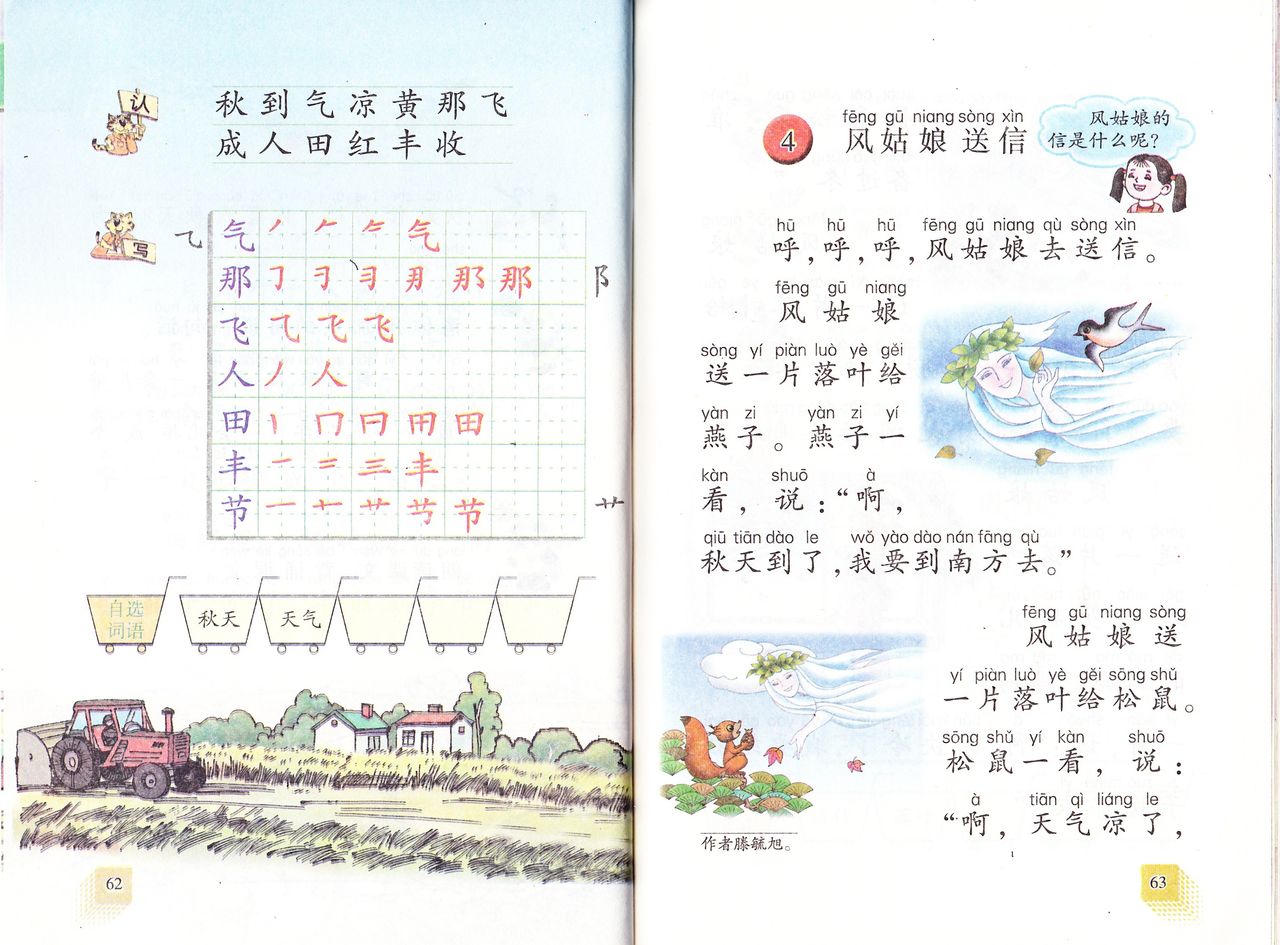 认
秋到气凉黄那飞
成人田红丰收
写
乁 气 丿 𠂉 气
那 那 阝
飞 飞
人 丿 人
田 丨 冂 田
丰 一 二 三 丰
节 一 十 艹 节 艹
自选
词语
秋天 天气
62
fēng gū niang sòng xìn
4 风姑娘送信
风姑娘的
信是什么呢?
hū hū hū fēng gū niang qù sòng xìn
呼,呼,呼,风姑娘去送信。
fēng gū niang
风姑娘
sòng yí piàn luò yè gěi
送一片落叶给
yàn zi yàn zi yí
燕子。燕子一
kàn shuō à
看,说:“啊,
qiū tiān dào le wǒ yào dào nán fāng qù
秋天到了,我要到南方去。”
fēng gū niang sòng
风姑娘送
yí piàn luò yè gěi sōng shǔ
一片落叶给松鼠。
sōng shǔ yí kàn shuō
松鼠一看,说:
à tiān qì liáng le
“啊,天气凉了,
作者滕毓旭。
63